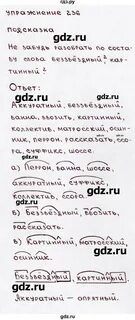 гдз.ру
упражнение 236
подсказка
Не забудь разобрать по соста-
ву слова беззвёздный, кар-
тинный.
Ответ:
Аккуратный, беззвёздный,
ванна, ввозить, картинный,
коллектив, матросский, осин-
ник, перрон, рассказать, ссо-
ра, суффикс, шоссе.
а) Перрон, ванна, шоссе,
аккуратный, суффикс,
коллектив, ссора.
б) Беззвёздный, ввозить,
рассказать.
в) Картинный, матросский,
осинник.
Беззвёздный, картинный
Аккуратный – опрятный.